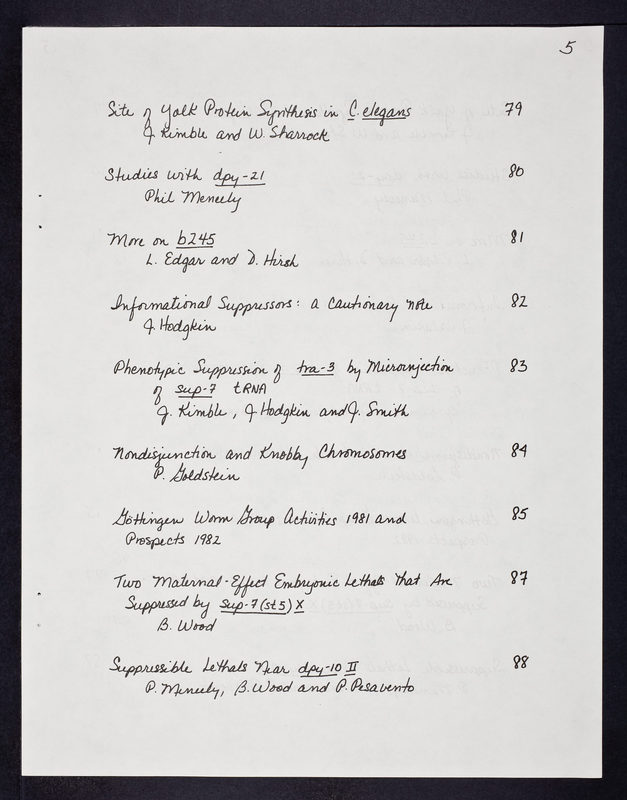 5
Site of Yolk Protein Synthesis in C. elegans 79
J. Kimble and W. Sharrock
Studies with dpy-21 80
Phil Meneely
More on b245 81
L. Edgar and D. Hirsh
Informational Suppressors: a cautionary note 82
J. Hodgkin
Phenotypic Suppression of tra-3 by Microinjection 83
of sup-7 tRNA
J. Kimble, J. Hodgkin and J. Smith
Nondisjunction and Knobby Chromosomes 84
P. Goldstein
Göttingen Worm Group Activities 1981 and 85
Prospects 1982
Two Maternal-Effect Embryonic Lethals That Are 87
Suppressed by sup-7(st5) X
B. Wood
Suppressible Lethals Near dpy-10 II 88
P. Meneely, B. Wood and P. Pesavento